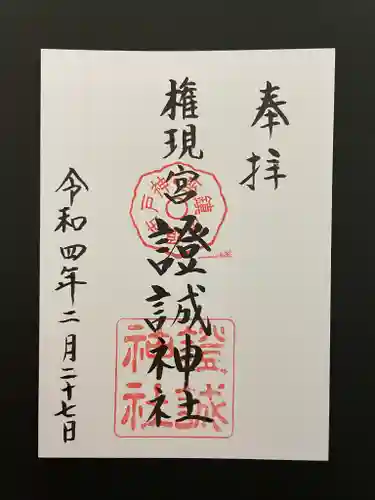 奉拝
権現宮
證誠神社
令和四年二月二十七日
證誠
神社